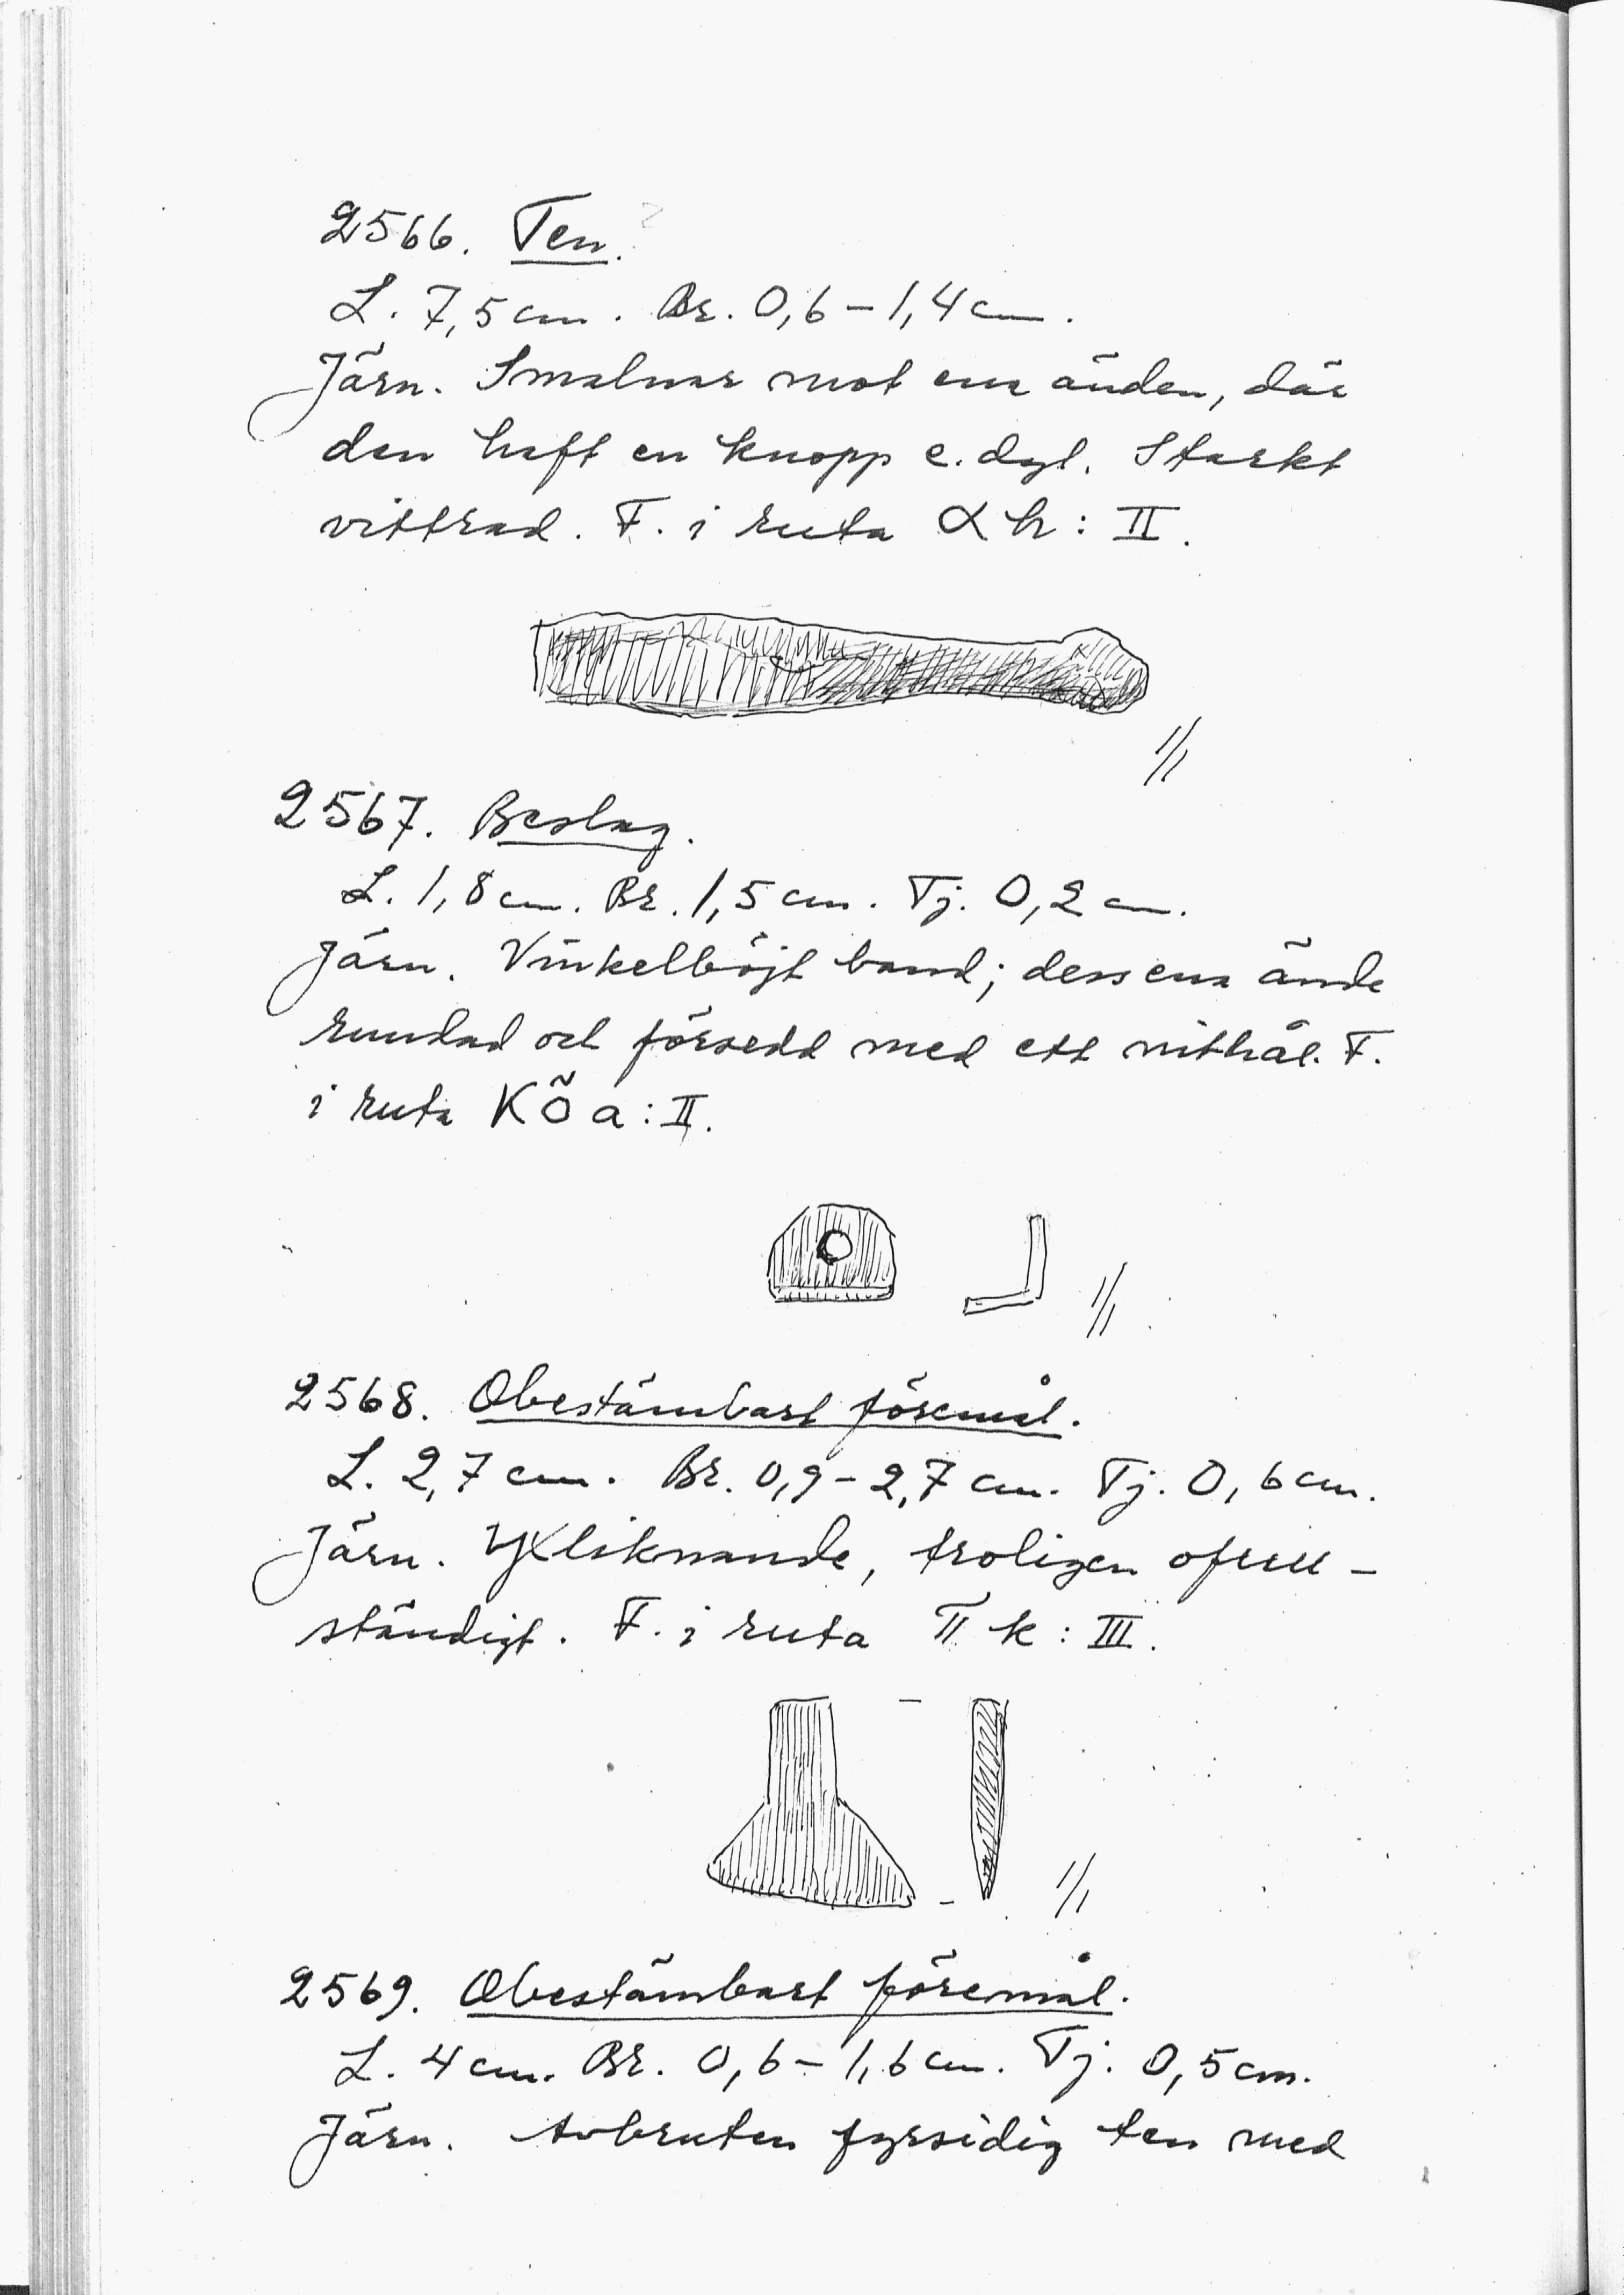 2566. Ten.
L. 7,5 cm. Br. 0,6 – 1,4 cm.
Järn. Smalnar mot ena änden, där
den haft en knopp e. dyl. Starkt
vittrad. F. i ruta α h : II.
1/1
2567. Beslag.
L. 1,8 cm. Br. 1,5 cm. Tj. 0,2 cm.
Järn. Vinkelböjt band; dess ena ände
rundad och försedd med ett nithål. F.
i ruta KÖ a : II.
1/1
2568. Obestämbart föremål.
L. 2,7 cm. Br. 0,9 – 2,7 cm. Tj. 0,6 cm.
Järn. Yxliknande, troligen ofull-
ständigt. F. i ruta π k : III.
1/1
2569. Obestämbart föremål.
L. 4 cm. Br. 0,6 – 1,6 cm. Tj. 0,5 cm.
Järn. Avbruten fyrsidig ten med